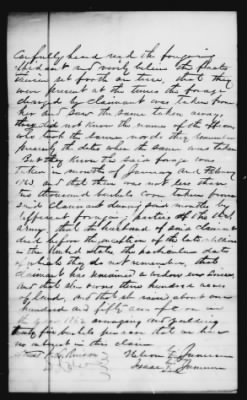 Carefully heard read the foregoing
affidavit and verily believe the facts
therein set forth are true, that they
were present at the times the forage
charged by claimant was taken from
her and saw the same taken away
they did not know the names of the officers
who took the same, nor do they remember
precisely the dates when the same was taken
But they know the said forage was
taken in months of January and February
1863, and that there was not less than
two thousand bushels corn taken from
said claimant during said months by
different foraging parties of the U.S.
army, that the husband of said claimant
died before the inception of the late rebellion
in the United States, the particular date
of which they do not remember, that
claimant has remained a widow ever since,
and that she owns three hundred acres
of land, and that she raised about one
hundred and fifty acres of corn in
the year 1862 averaging and yielding
five bushels per acre that we have
no interest in this claim
Nelson
Isaac